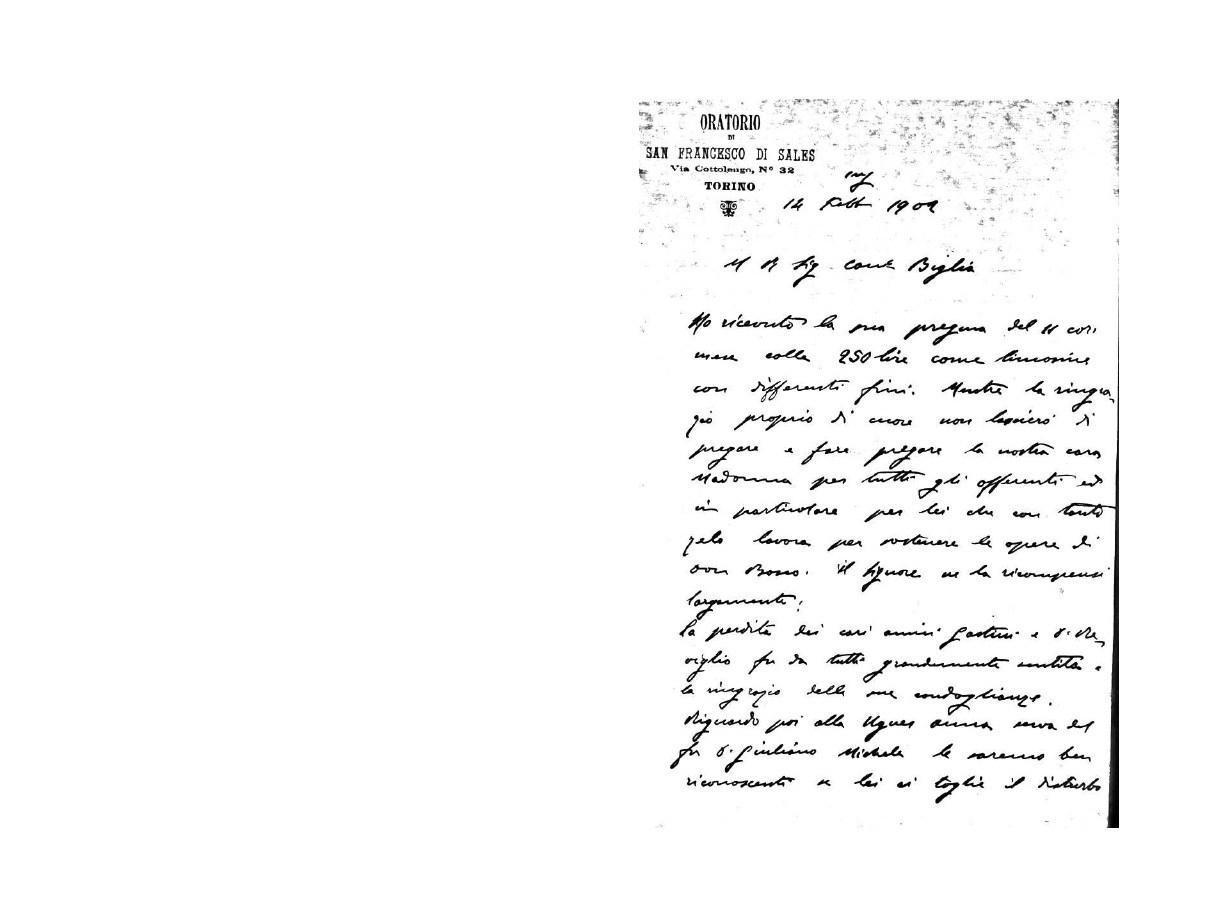 ORATORIO
DI
SAN FRANCESCO DI SALES
Via Cottolengo, N° 32
TORINO
14 Febb 1902
M R Sig Can Biglia
Ho ricevuto la sua pregma del 11 corr
mese colle 250 lire come limosine
con differenti fini. Mentre la ringra-
zio proprio di cuore non lascierò di
pregare e fare pregare la nostra cara
Madonna per tutti gli offerenti ed
in particolare per lei che con tanto
zelo lavora per sostenere le opere di
Don Bosco. Il Signore ne la ricompensi
largamente.
La perdita dei cari amici Gastini e D. Re-
viglio fu da tutti grandemente sentita e
la ringrazio delle sue condoglianze.
Riguardo poi alla Ugues Anna serva del
fu D. Giuliano Michele le saremo ben
riconoscenti se lei ci toglie il disturbo